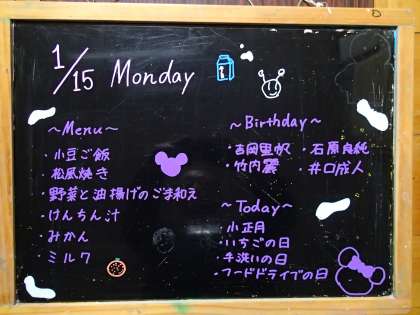 1/15 Monday
~Menu~
・小豆ご飯
・松風焼き
・野菜と油揚げのごま和え
・けんちん汁
・みかん
・ミルク
~Birthday~
・吉岡里帆 ・石原良純
・竹内裏 ・井口成人
~Today~
・小正月
・いちごの日
・手洗いの日
・フードドライブの日